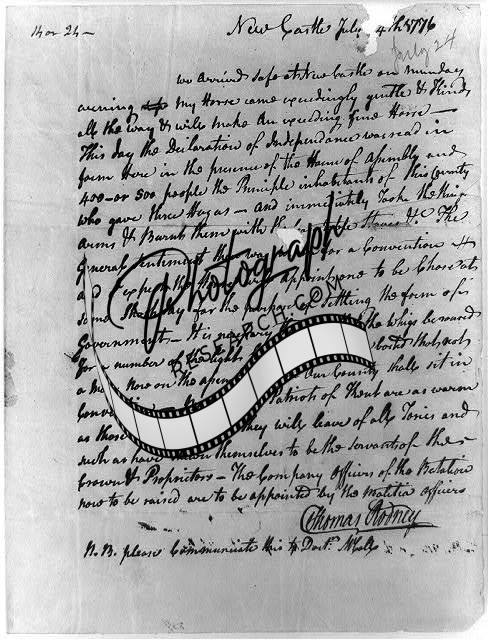 14 or 24 -
New Castle July 4th 1776
July 24
we arrived safe at New Castle on munday
evening my Horse came exceedingly gentle & Kind
all the way & will make An exceeding fine Horse -
This day the Declaration of Independance was read in
form Here in the presence of the House of Asembly and
400 - or 500 people the Principle inhabitants of this County
who gave three Huzas - and immediately Took the King
Arms & Burnt them with the Staves &c The
General Sentiment for a Convention &
appoint one to be Chose at
some for the purpose of Setling the form of
Government - It is the whigs be roused
for a number of
a now on the our County shall sit in
Conven Patriots of Kent are as warm
as those They will leave of all Tories and
such as have themselves to be the servants of the
Crown & Proprietors - The Company officers of the Batalion
now to be raised are to be appointed by the malitia officers
Thomas Rodney
N.B. please Communicate this to Doctr. McCall
Photograph
RESEARCH.COM